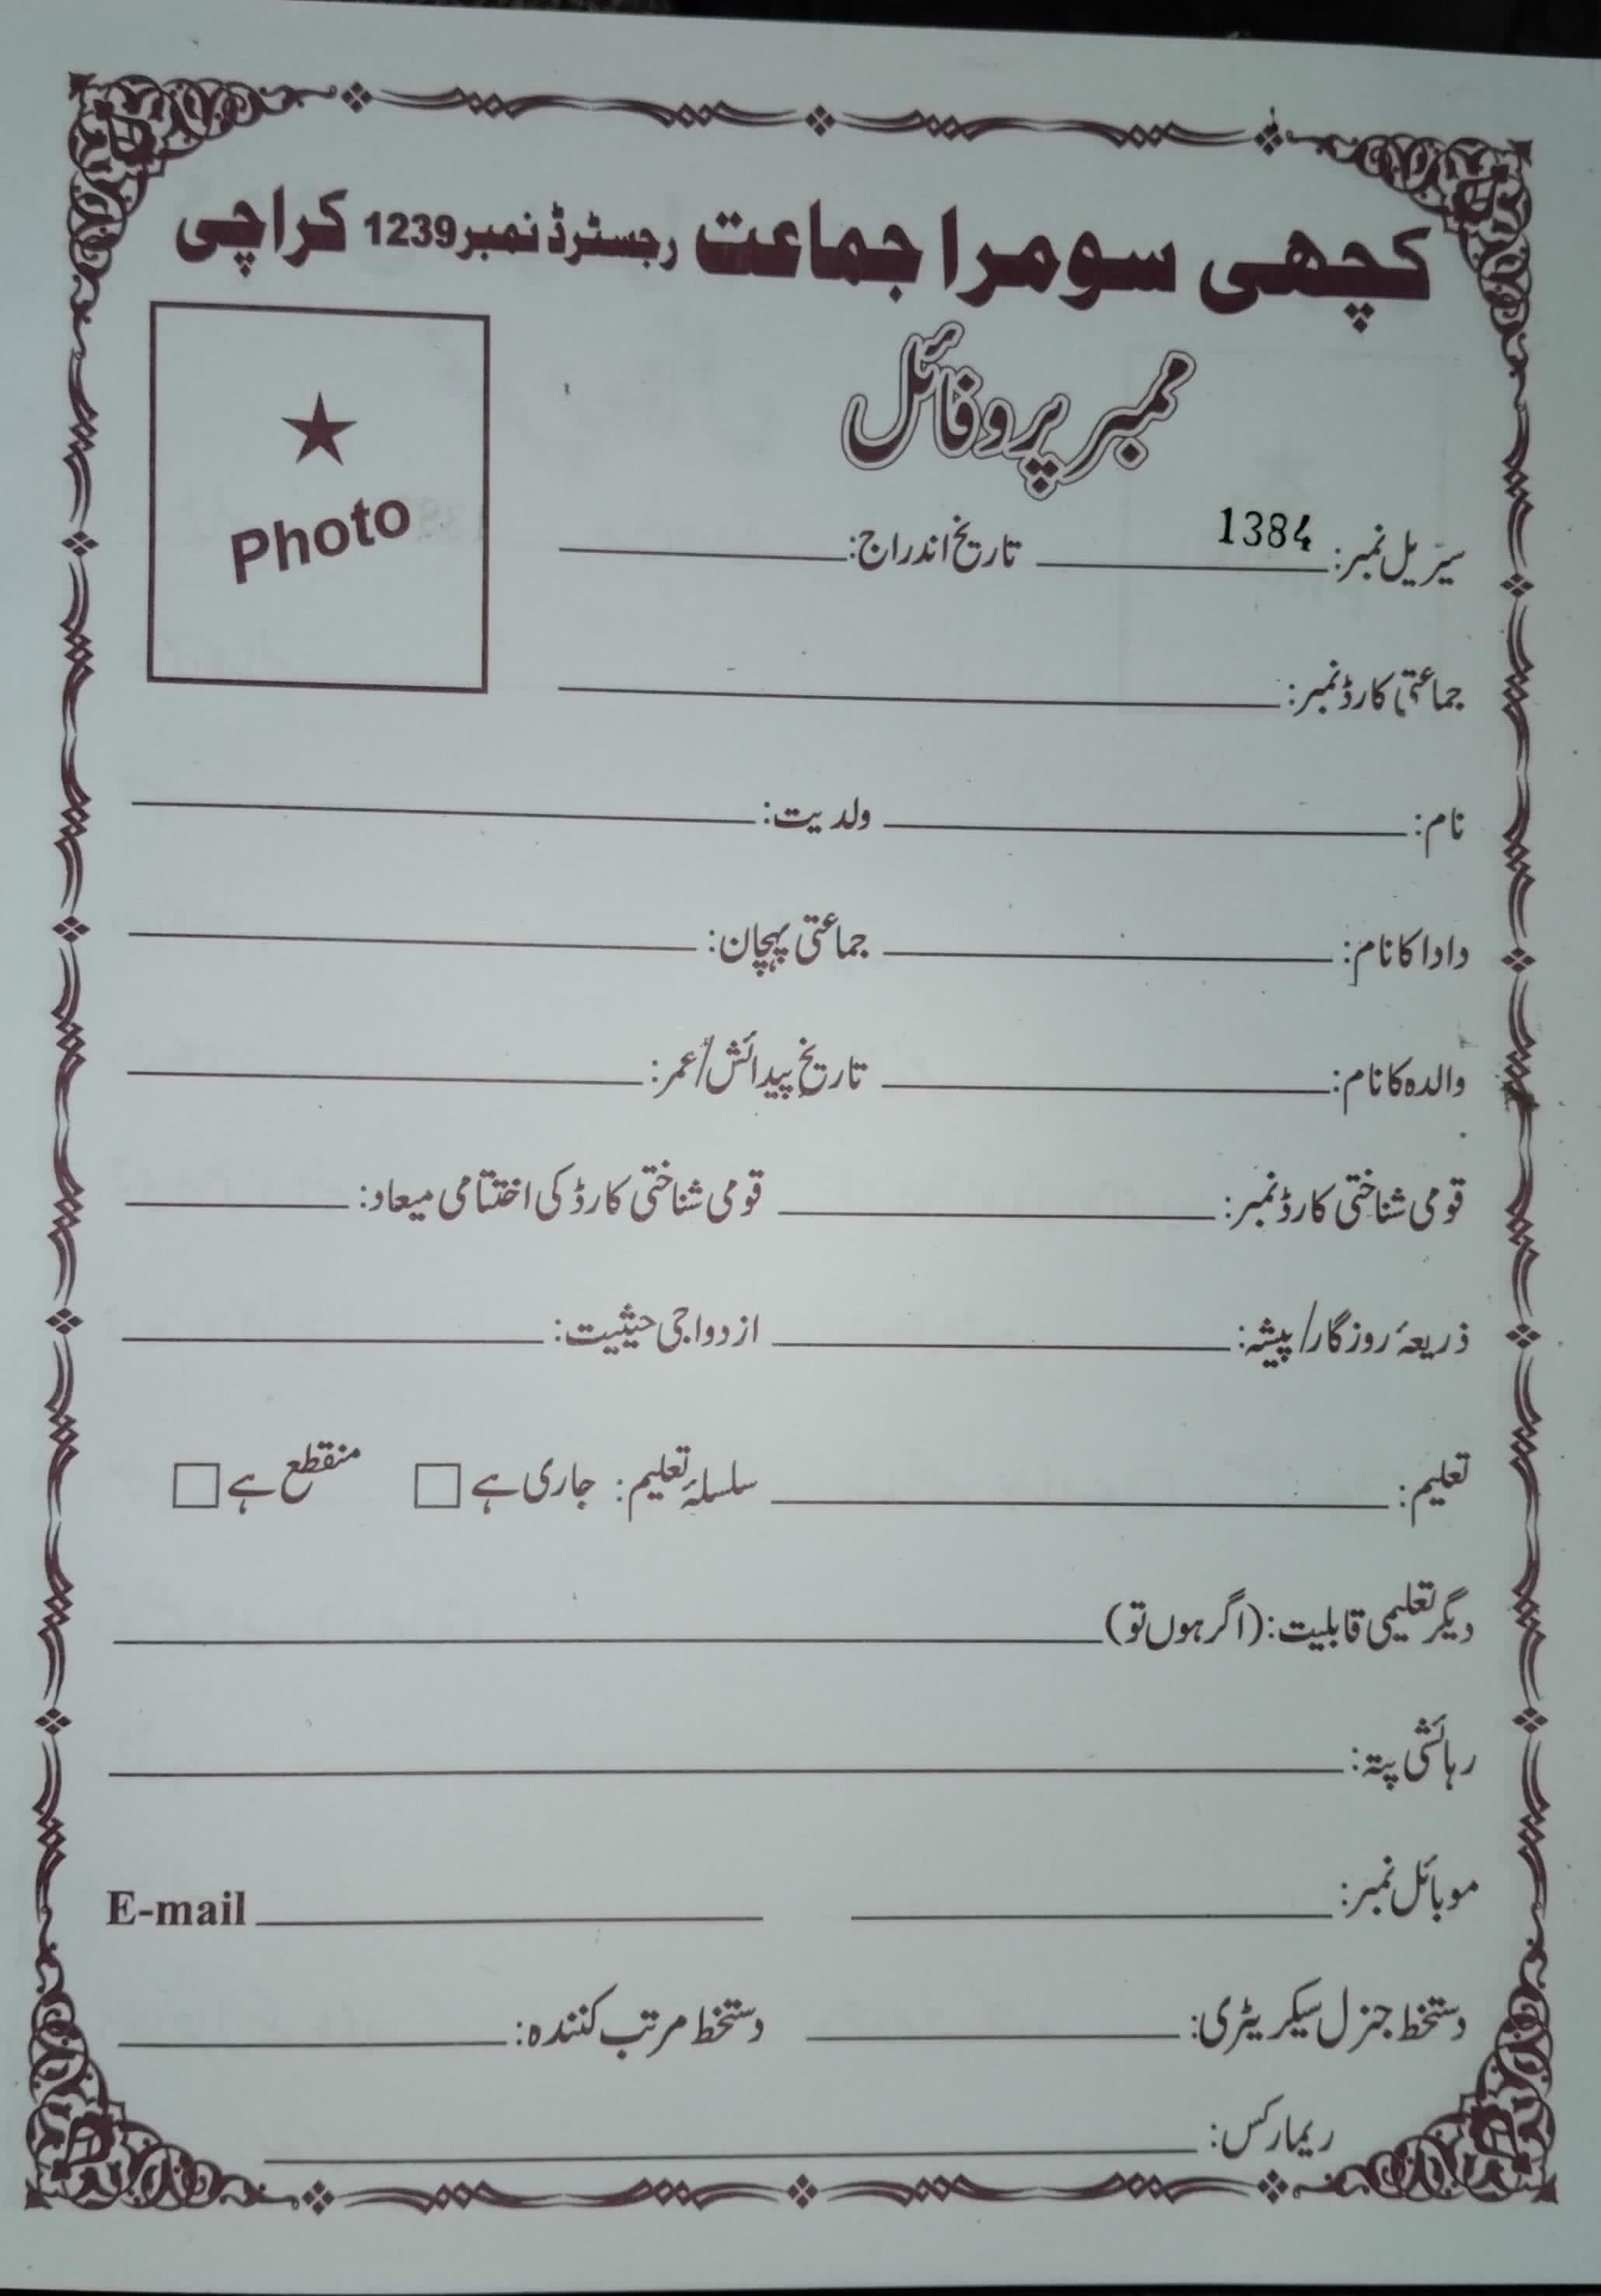 کچھی سومرا جماعت رجسٹرڈ نمبر 1239 کراچی
ممبر پروفائل
Photo
سیریل نمبر: 1384 تاریخ اندراج:
جماعتی کارڈ نمبر:
نام: ولدیت:
دادا کا نام: جماعتی پہچان:
والدہ کا نام: تاریخ پیدائش/عمر:
قومی شناختی کارڈ نمبر: قومی شناختی کارڈ کی اختتامی میعاد:
ذریعۂ روزگار/پیشہ: ازدواجی حیثیت:
تعلیم: سلسلۂ تعلیم: جاری ہے منقطع ہے
دیگر تعلیمی قابلیت: (اگر ہوں تو)
رہائشی پتہ:
موبائل نمبر: E-mail
دستخط جنرل سیکریٹری: دستخط مرتب کنندہ:
ریمارکس: